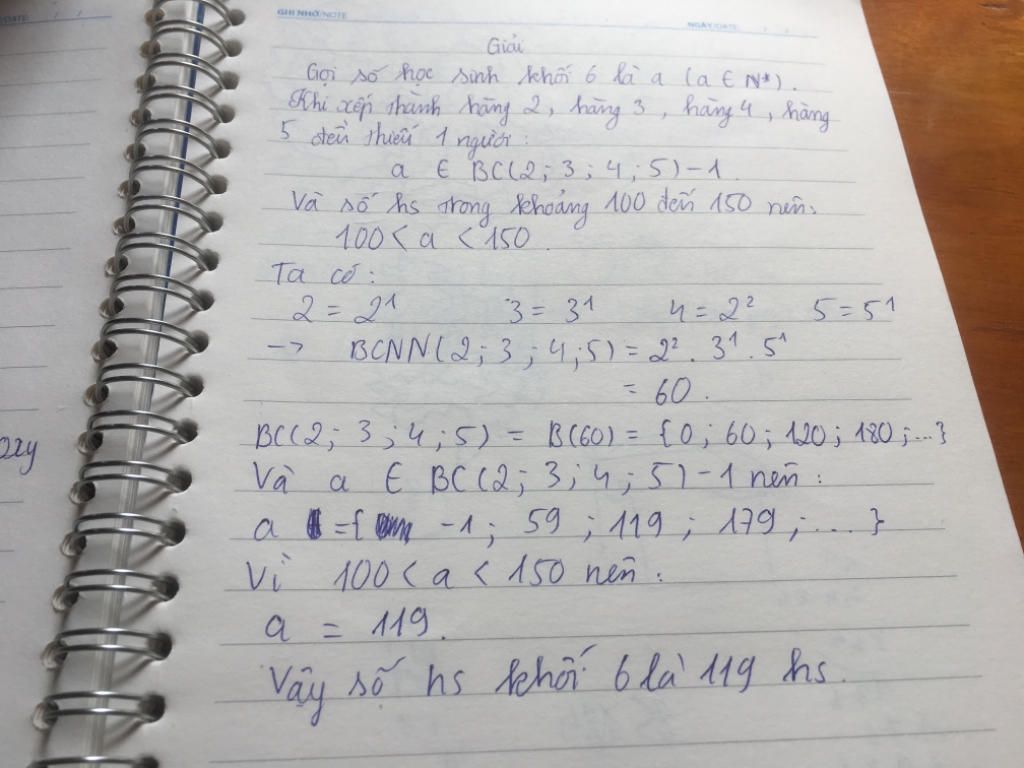 /DATE: / /
GHI NHỚ/NOTE
NGÀY/DATE: / /
Giải
Gọi số học sinh khối 6 là a (a ∈ N*).
Khi xếp thành hàng 2, hàng 3, hàng 4, hàng
5 đều thiếu 1 người:
a ∈ BC(2; 3; 4; 5) - 1.
Và số hs trong khoảng 100 đến 150 nên:
100 < a < 150.
Ta có:
2 = 2¹ 3 = 3¹ 4 = 2² 5 = 5¹
→ BCNN(2; 3; 4; 5) = 2² . 3¹ . 5¹
= 60.
BC(2; 3; 4; 5) = B(60) = {0; 60; 120; 180; ...}
Và a ∈ BC(2; 3; 4; 5) - 1 nên:
a = { -1; 59; 119; 179; ... }
Vì 100 < a < 150 nên:
a = 119.
Vậy số hs khối 6 là 119 hs.